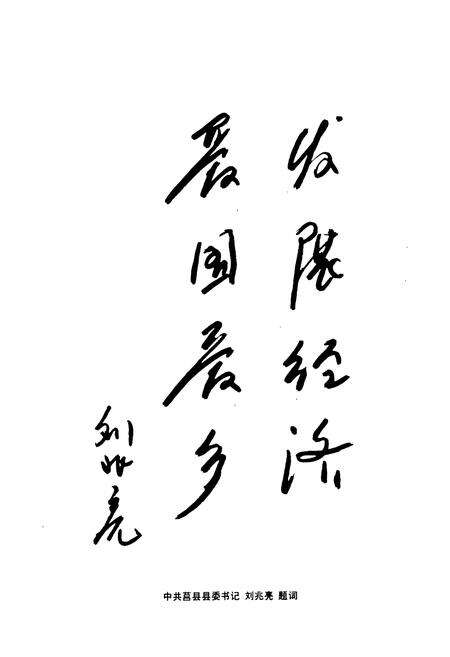 发展经济
爱国爱乡
刘兆亮
中共莒县县委书记 刘兆亮 题词